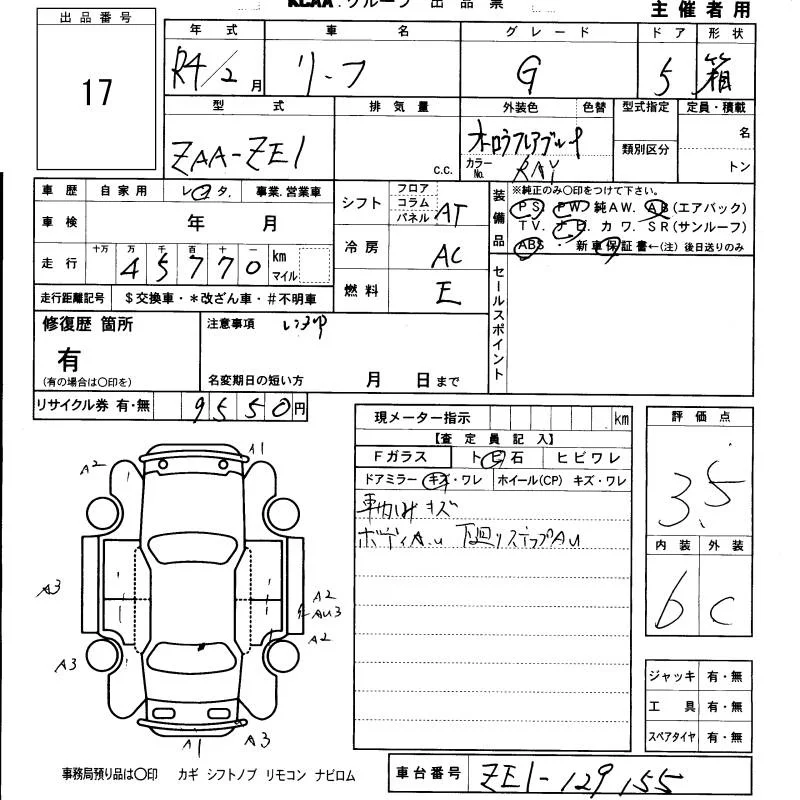 KCAA.グループ 出品票
主催者用
出品番号
17
年式 車名 グレード ドア 形状
R4/2月 リーフ G 5 箱
型式 排気量 外装色 色替 型式指定 定員・積載
ZAA-ZE1 C.C. 名
類別区分
カラーNo. RAY トン
車歴 自家用 レンタ. 事業.営業車
車検 年 月
走行 十万 万 千 百 十 一
45770 km マイル
走行距離記号 $交換車・*改ざん車・#不明車
シフト フロア コラム パネル AT
冷房 AC
燃料 E
装備品
※純正のみ〇印をつけて下さい。
PS PW 純AW. AB(エアバック)
TV. ナビ カワ. SR(サンルーフ)
ABS・新車保証書←(注)後日送りのみ
セールスポイント
修復歴 箇所
有
(有の場合は〇印を)
注意事項
名変期日の短い方 月 日まで
リサイクル券 有・無 9550円
現メーター指示 km
【査定員記入】
Fガラス トビ石 ヒビワレ
ドアミラー キズ・ワレ ホイール(CP) キズ・ワレ
キズ
ボディA.u 下廻りステップAu
評価点
3.5
内装 外装
b C
A1
A2
A3
A2
AU3
A2
A3
A1 A3
ジャッキ 有・無
工具 有・無
スペアタイヤ 有・無
事務局預り品は〇印 カギ シフトノブ リモコン ナビロム
車台番号 ZE1-129155